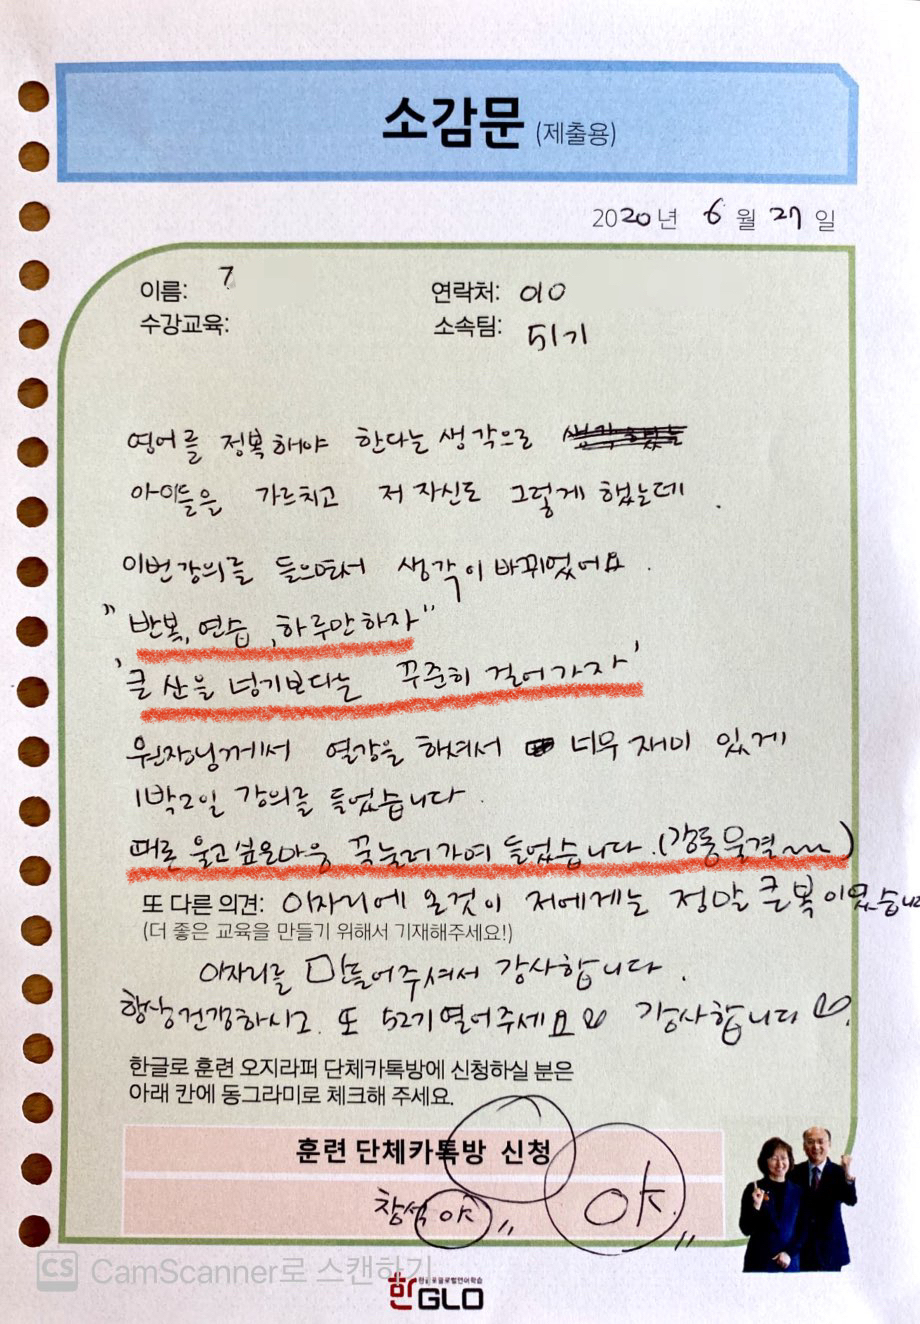 소감문 (제출용)
2020년 6월 27일
이름: 연락처: 010
수강교육: 소속팀: 51기
영어를 정복해야 한다는 생각으로
아이들을 가르치고 저 자신도 그렇게 했는데.
이번강의를 들으면서 생각이 바뀌었어요.
"반복, 연습, 하루만하자"
'큰 산을 넘기보다는 꾸준히 걸어가자'
원장님께서 열강을 하셔서 너무 재미 있게
1박2일 강의를 들었습니다.
때론 울고싶은마음 꾹눌러가며 들었습니다.(감동물결~~)
또 다른 의견: 이자리에 온것이 저에게는 정말 큰복이었습니다
(더 좋은 교육을 만들기 위해서 기재해주세요!)
이자리를 만들어주셔서 감사합니다.
항상건강하시고. 또 52기열어주세요 감사합니다.
한글로 훈련 오지라퍼 단체카톡방에 신청하실 분은
아래 칸에 동그라미로 체크해 주세요.
훈련 단체카톡방 신청
참석 야" 야"
CS CamScanner로 스캔하기
한글로글로벌언어학습
한GLO